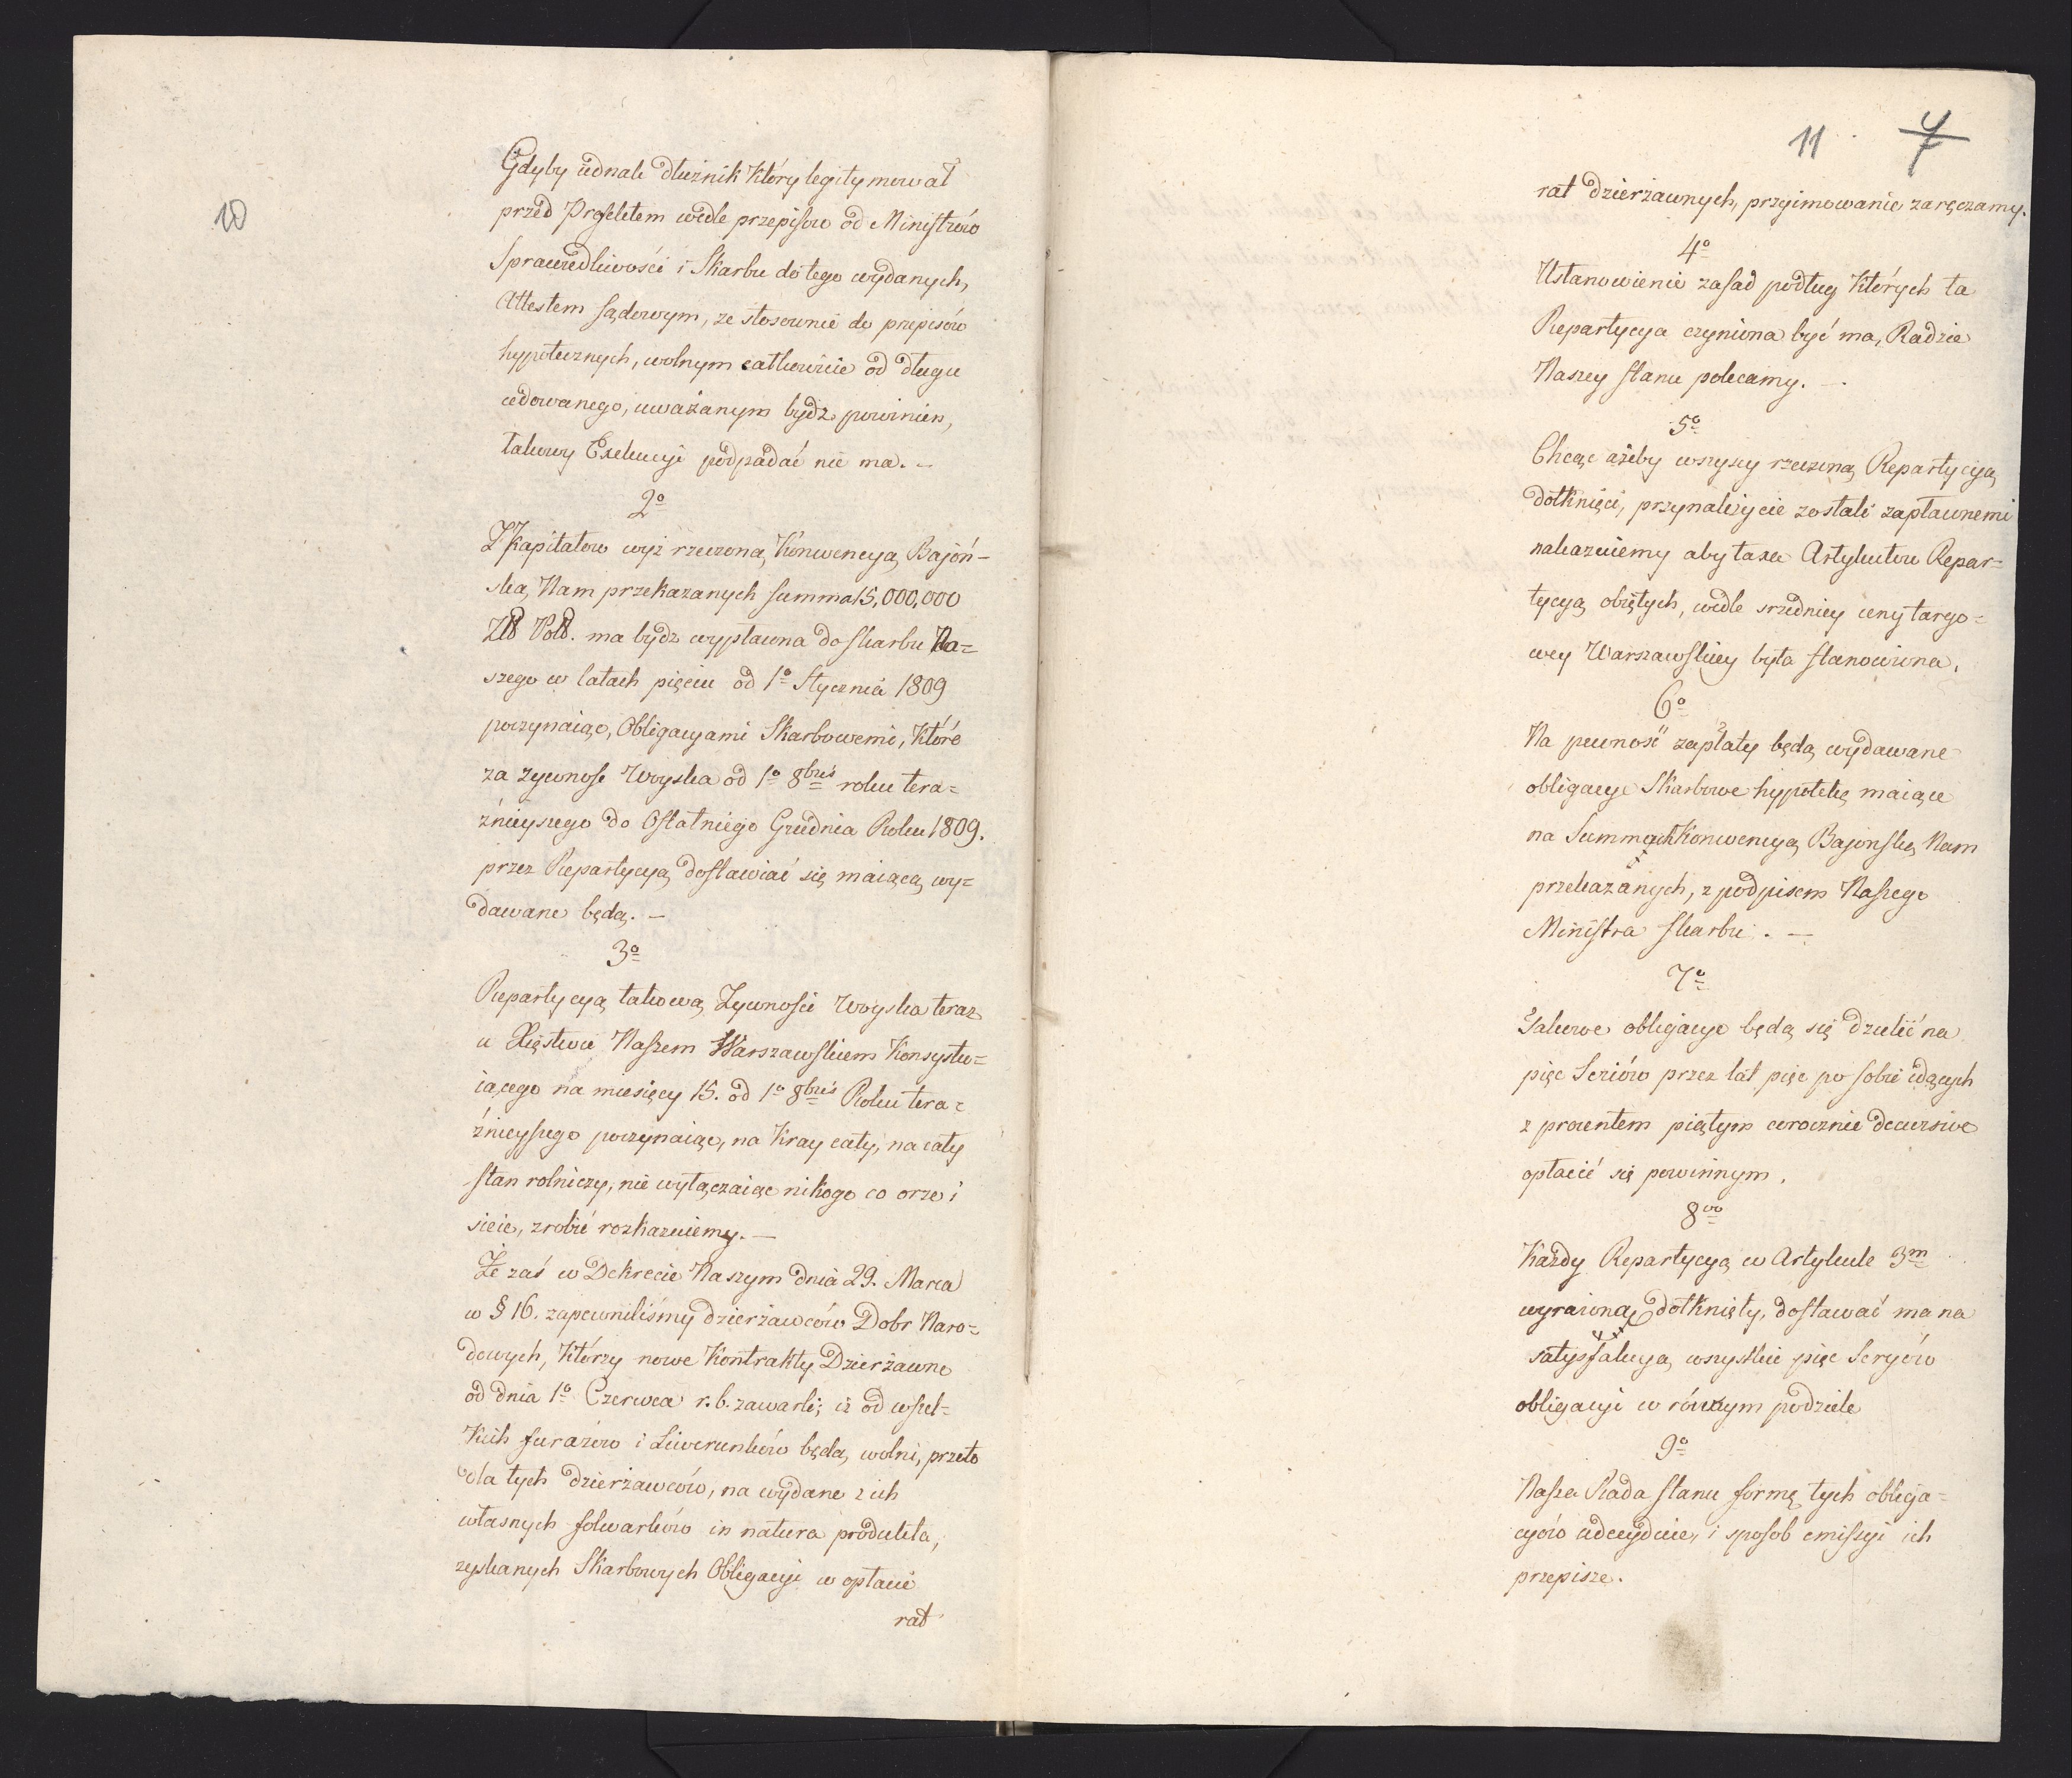 10
Gdyby iednak dłużnik który legitymował
przed Prefektem wedle przepisow od Ministrów
Sprawiedliwości i Skarbu do tego wydanych,
Attestem sądowym, ze stosownie do przepisów
hypotecznych, wolnym całkowicie od długu
cedowanego, uważanym bydz powinien,
takowy Exekucyi podpadać nie ma. –
2º
Z Kapitałow wyż rzeczoną Konwencyą Bajoń-
ską Nam przekazanych summa 15,000,000
Złł Poll. ma bydz wypłacona do skarbu Na=
szego w latach pięciu od 1º Stycznia 1809
poczynaiąc, Obligacyami Skarbowemi, które
za zywnosc Woyska od 1º 8bris roku tera=
źnieyszego do Ostatniego Grudnia Roku 1809.
przez Repartycyą dostawiać się maiącą wy=
dawane będą. –
3º
Repartycyą takową Zywnosci Woyska teraz
w Xięstwie Naszem Warszawskiem Konsystu=
iącego na miesięcy 15. od 1º 8bris Roku tera=
źnieyszego poczynaiąc, na Kray cały, na cały
stan rolniczy, nie wyłączaiąc nikogo co orze i
sieie, zrobić rozkazuiemy. –
Że zaś w Dekrecie Naszym dnia 29. Marca
w § 16. zapewniliśmy dzierżawców Dobr Naro=
dowych, którzy nowe Kontrakty Dzierżawne
od dnia 1º Czerwca r. b. zawarli; iż od wszel=
kich furażow i Liwerunków będą wolni, przeto
dla tych dzierżawców, na wydane z ich
własnych folwarków in natura produkta,
zyskanych Skarbowych Obligacyi w opłacie
rat
11 7
rat dzierżawnych, przyimowanie zaręczamy.
4º
Ustanowienie zasad podług których ta
Repartycya czyniona być ma, Radzie
Naszey stanu polecamy. –
5º
Chcąc ażeby wszyscy rzeczoną Repartycyą
dotknięci, przynależycie zostali zapłaconemi
nakazuiemy aby taxa Artykułow Repar=
tycyą obiętych, wedle srzedniey ceny targo=
wey Warszawskiey była stanowiona.
6º
Na pewność zapłaty będą wydawane
obligacye Skarbowe hypotekę maiące
na Summach Konwencyą Bajońską Nam
przekazanych, z podpisem Naszego
Ministra skarbu. –
7º
Takowe obligacye będą się dzielić na
pięc Seriów przez lat pięc po sobie idących
z procentem piątym corocznie decursive
opłacić się powinnym.
8vo
Każdy Repartycyą w Artykule 3m
wyrażoną dotknięty, dostawać ma na
satysfakcyą wszystkie pięc Seryów
obligacyi w równym podziele
9º
Nasza Rada stanu formę tych obliga=
cyów udecyduie, i sposob emissyi ich
przepisze.